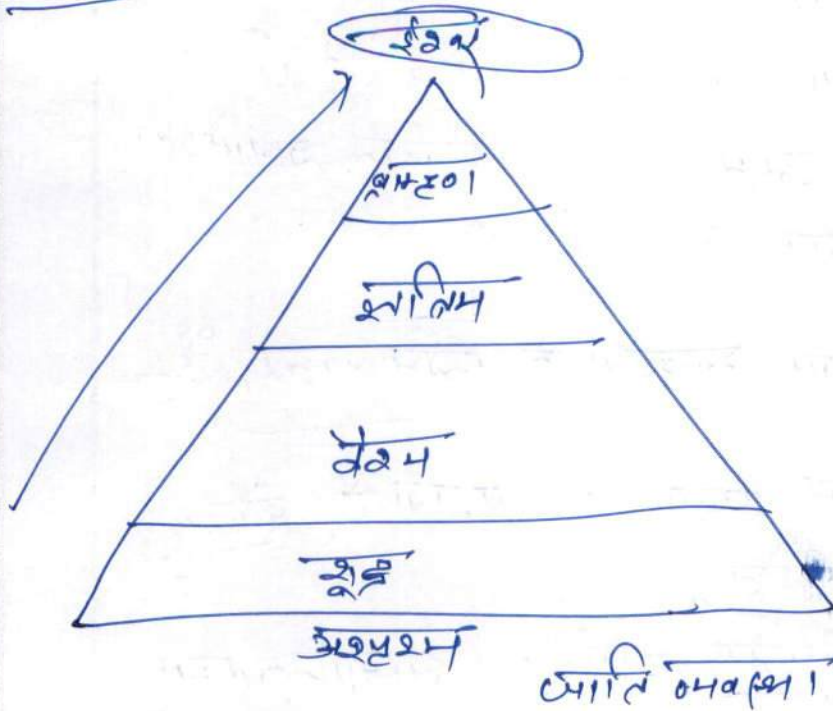 ईश्वर
ब्राम्हण
क्षत्रिय
वैश्य
शूद्र
अस्पृश्य
जाति व्यवस्था